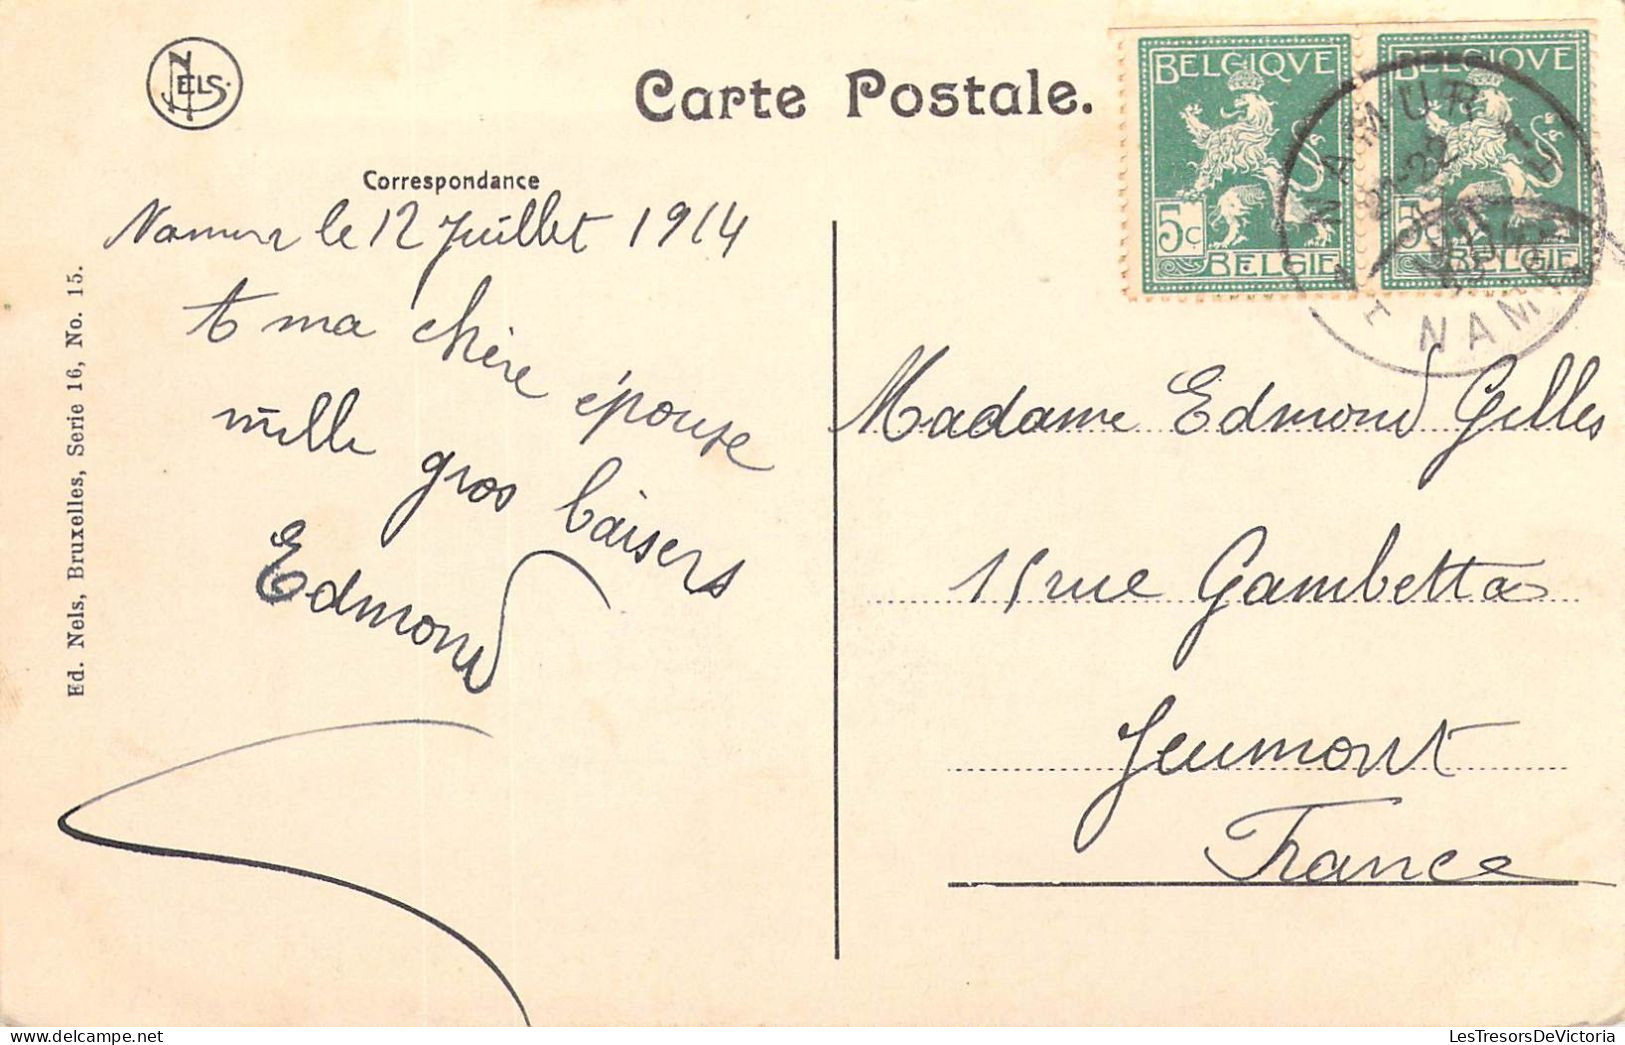 NELS.
Carte Postale.
Correspondance
Namur le 12 Juillet 1914
A ma chère épouse
mille gros baisers
Edmond
Ed. Nels, Bruxelles, Serie 16, No. 15.
BELGIQVE
5c
BELGIE
BELGIQVE
5c
BELGIE
NAMUR
NAM
Madame Edmond Gilles
15 rue Gambetta
Jeumont
France
LesTresorsDeVictoria